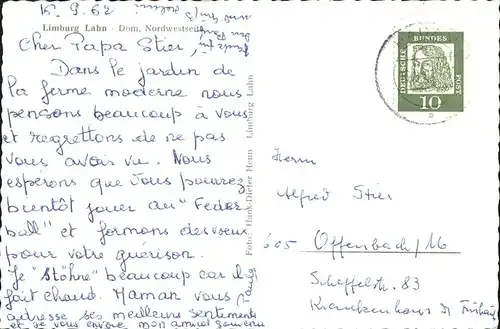 K. 9. 62
Limburg Lahn · Dom, Nordwestseite
Cher Papa Stier,
Dans le jardin de
la ferme moderne nous
pensons beaucoup à vous
et regrettons de ne pas
vous avoir vu. Nous
espérons que vous pouvez
bientôt jouer au "Feder
ball" et formons des voeux
pour votre guérison.
Je "Stöhne" beaucoup car il
fait chaud. Maman vous
adresse ses meilleurs sentiments
et je vous envoie mon amical souvenir
Foto: Hans-Dieter Heun Limburg Lahn
DEUTSCHE BUNDES POST
10
Herrn
Alfred Stier
605 Offenbach/M
Scheffelstr. 83
Krankenhaus